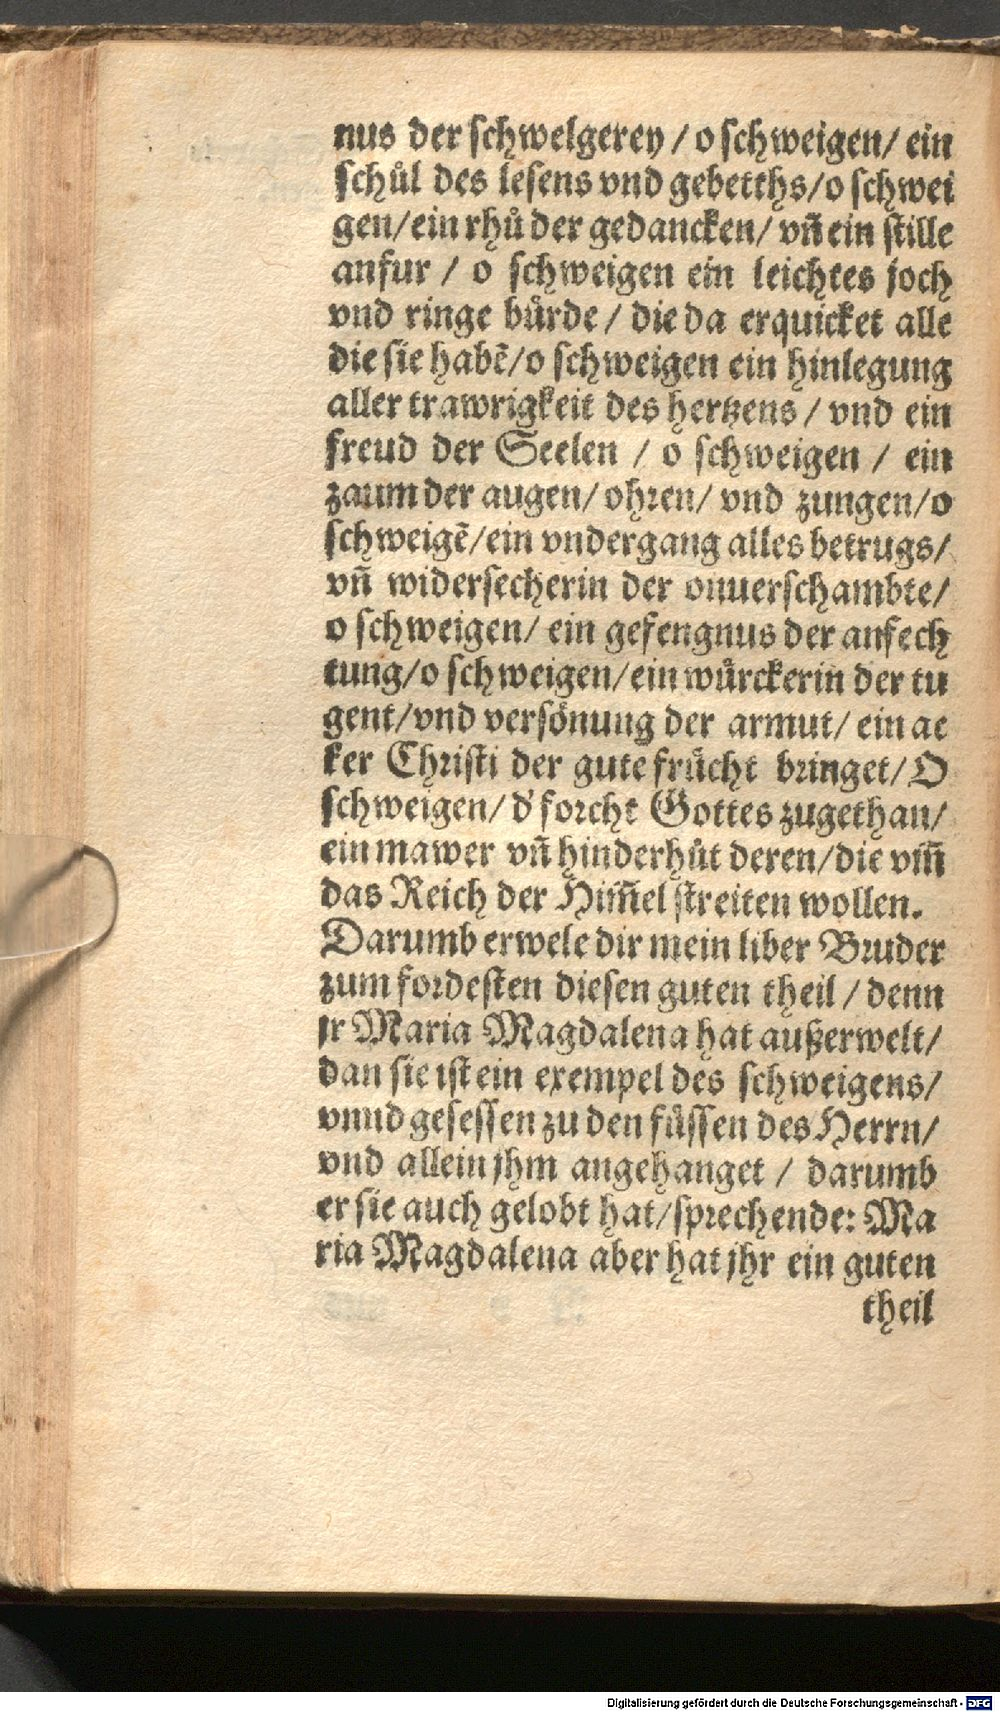 nus der schwelgerey / o schweigen / ein
schůl des lesens vnd gebetths / o schwei
gen / ein rhů der gedancken / vn̄ ein stille
anfur / o schweigen ein leichtes joch
vnd ringe bůrde / die da erquicket alle
die sie habē / o schweigen ein hinlegung
aller trawrigkeit des hertzens / vnd ein
freud der Seelen / o schweigen / ein
zaum der augen / ohren / vnd zungen / o
schweigē / ein vndergang alles betrugs /
vn̄ widersecherin der onuerschambte /
o schweigen / ein gefengnus der anfech
tung / o schweigen / ein wůrckerin der tu
gent / vnd versönung der armut / ein ac
ker Christi der gute frůcht bringet / O
schweigen / d' forcht Gottes zugethan /
ein mawer vn̄ hinderhůt deren / die vm̄
das Reich der Him̄el streiten wollen.
Darumb erwele dir mein liber Bruder
zum fordesten diesen guten theil / denn
jr Maria Magdalena hat außerwelt /
dan sie ist ein exempel des schweigens /
vnnd gesessen zu den fůssen des Herrn /
vnd allein jhm angehanget / darumb
er sie auch gelobt hat / sprechende: Ma
ria Magdalena aber hat jhr ein guten
theil
Digitalisierung gefördert durch die Deutsche Forschungsgemeinschaft - DFG